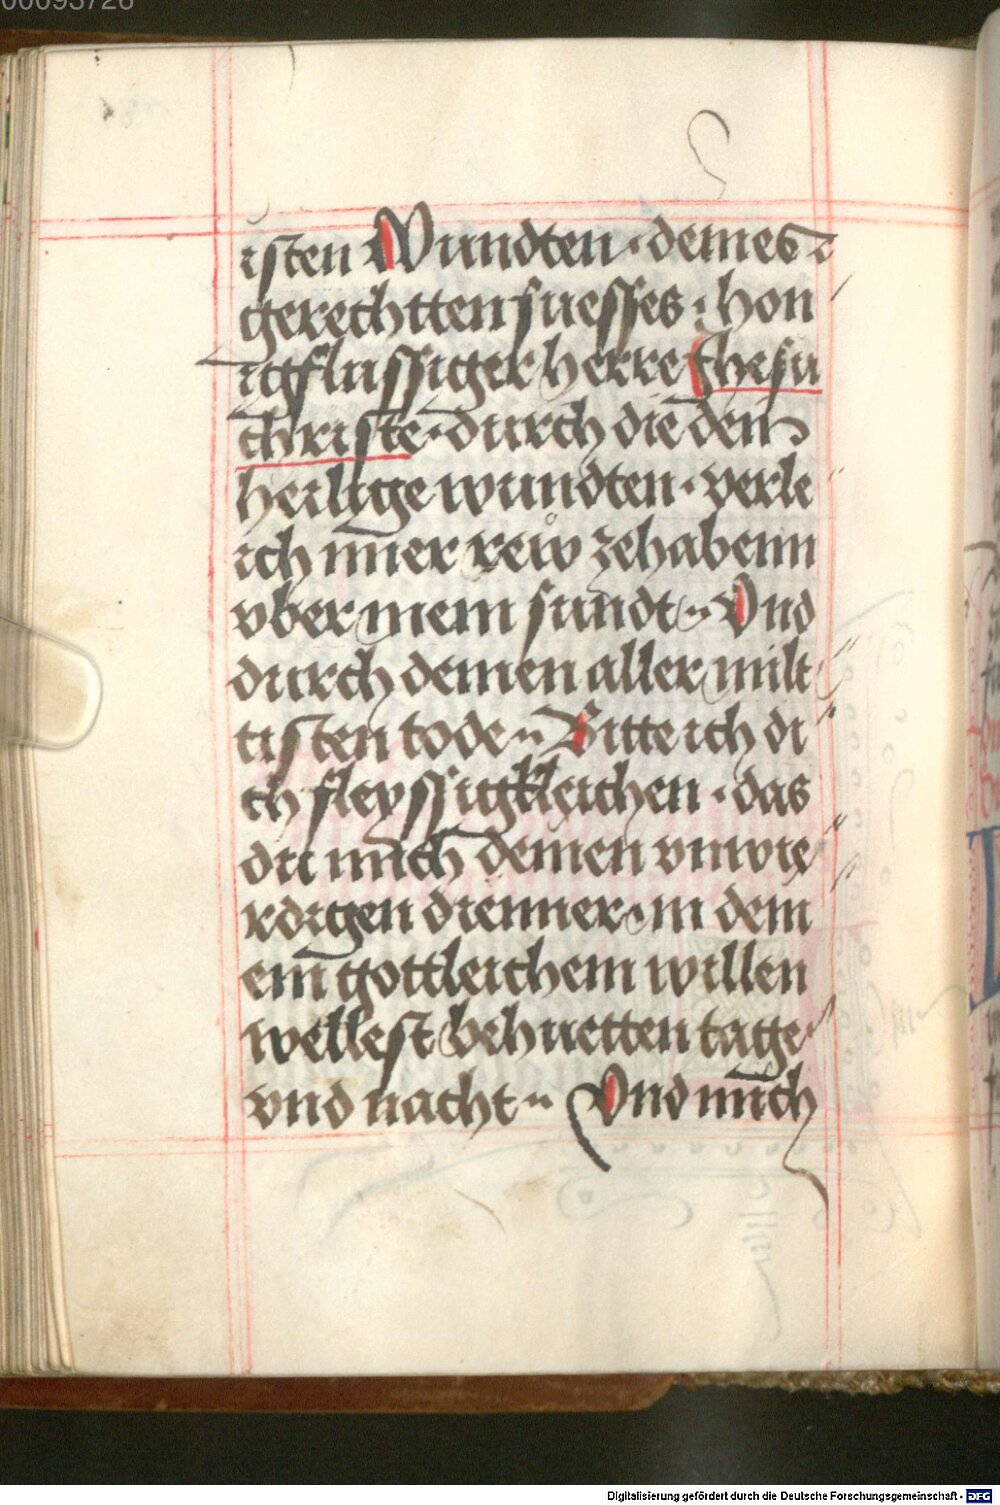 00093726
isten Wundten · deines
gerechtten fuesses · hon
igflussiger herre Jhesu
christe · durch die dein
heilige wundten · verle
ich mir rew zehabenn
vber mein sundt · Vnd
durch deinen aller milt
tisten tode · Bitte ich di
ch fleyssigkleichen · das
du mich deinen vnwie
rdigen dienner in dein
em gottleichem willen
wellest behuetten tage
vnd nacht · Vnd mich
Digitalisierung gefördert durch die Deutsche Forschungsgemeinschaft - DFG